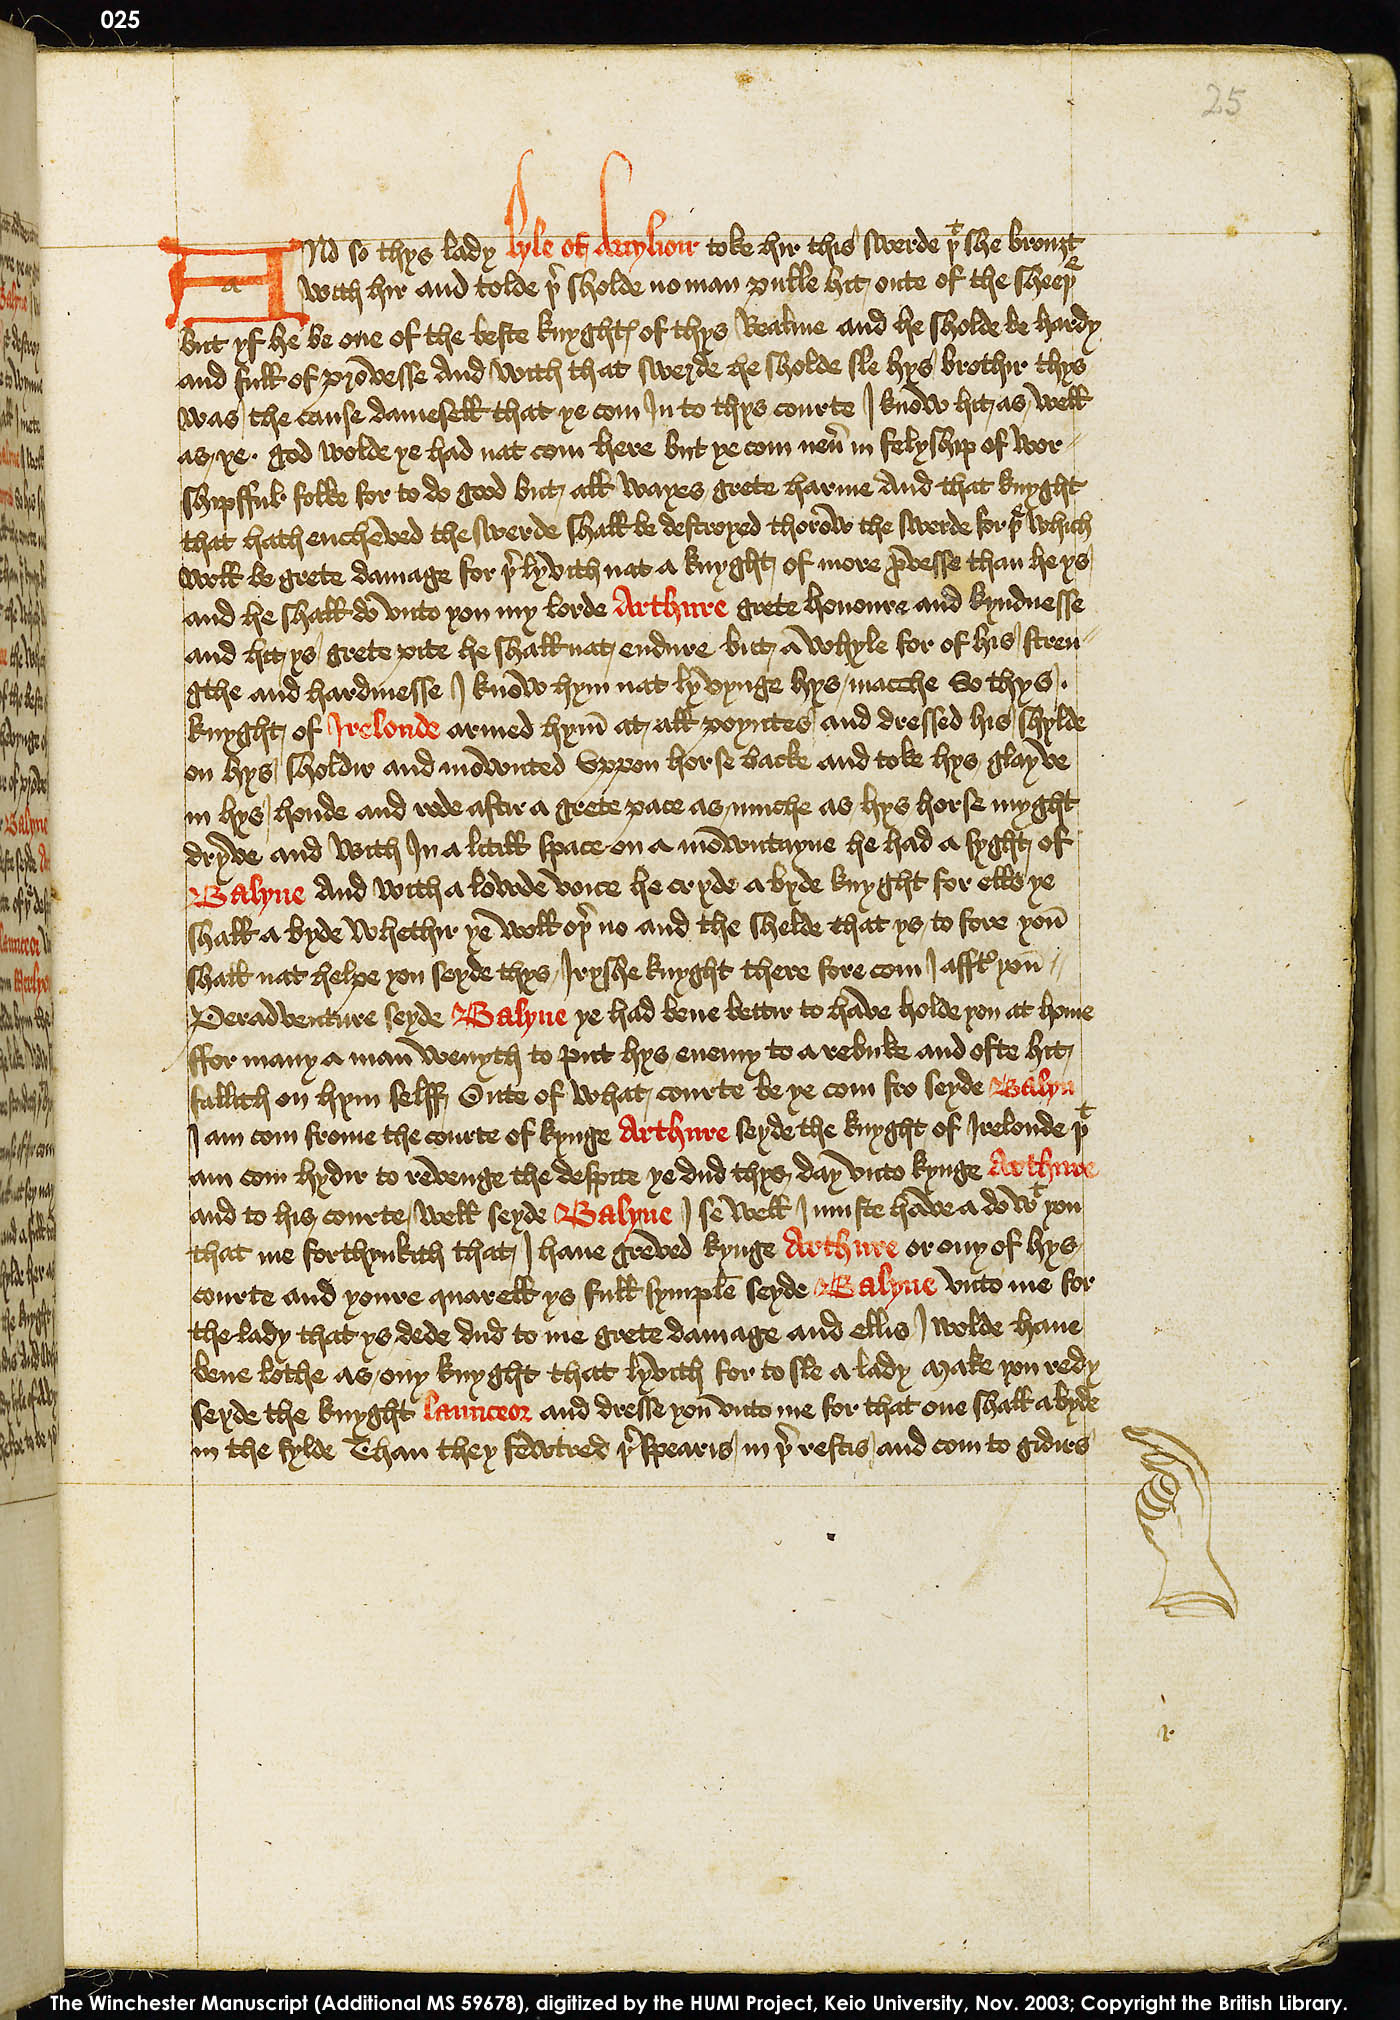 025
25
ANd so thys lady lyle of Auylion toke hir this swerde þt she brouȝt
with hir and tolde þr sholde no man pulle hit oute of the sheeþe
but yf he be one of the beste knyghtes of thys Realme and he sholde be hardy
and full of prowesse And with that swerde he sholde sle hys brothir thys
was the cause damesell that ye com In to thys courte I know hit as well
as ye . god wolde ye had nat com here but ye com neu̾ in felyshyp of wor-
shipfful folke for to do good but all wayes grete harme And that knyght
that hath encheved the swerde shall be destroyed thorow the swerde for þe which
woll be grete damage for þr lyvith nat a knyght of more ꝓvesse than he ys
and he shall do vnto you my lorde Arthure grete honoure and kyndnesse
and hit ys grete pite he shall nat endure but a whyle for of his stren-
gthe and hardinesse I know hym nat lyvynge hys macche So thys .
knyght of Irelonde armed hym̄ at all poyntes and dressed his shylde
on hys sholdir and mownted vppon horse backe and toke hys glayve
in hys honde and rode aftir a grete pace as muche as hys horse myght
dryve and with In a litill space on a mowntayne he had a syght of
Balyne And with a lowde voice he cryde a byde knyght for ells ye
shall a byde whethir ye woll oþr no and the shelde that ys to fore you
shall nat helpe you seyde thys Iryshe knyght there fore com I afftr you
Peradventure seyde Balyne ye had bene bettir to have holde you at home
ffor many a man wenyth to put hys enemy to a rebuke and ofte hit
fallith on hym selff Oute of what courte be ye com fro seyde Balyn
I am com frome the courte of kynge Arthure seyde the knyght of Irelonde þt
am com hydir to revenge the despite ye dud thys day vnto kynge Arthure
and to his courte well seyde Balyne I se well I muste have a do wt you
that me forthynkith that I haue greved kynge Arthure or ony of hys
courte and youre quarell ys full symple seyde Balyne vnto me for
the lady that ys dede dud to me grete damage and ellis I wolde haue
bene lothe as ony knyght that lyvith for to sle a lady Make you redy
seyde the knyght launceor and dresse you vnto me for that one shall abyde
in the fylde Than they fewtred þr spearis in þr restis and com to gidirs
The Winchester Manuscript (Additional MS 59678), digitized by the HUMI Project, Keio University, Nov. 2003; Copyright the British Library.